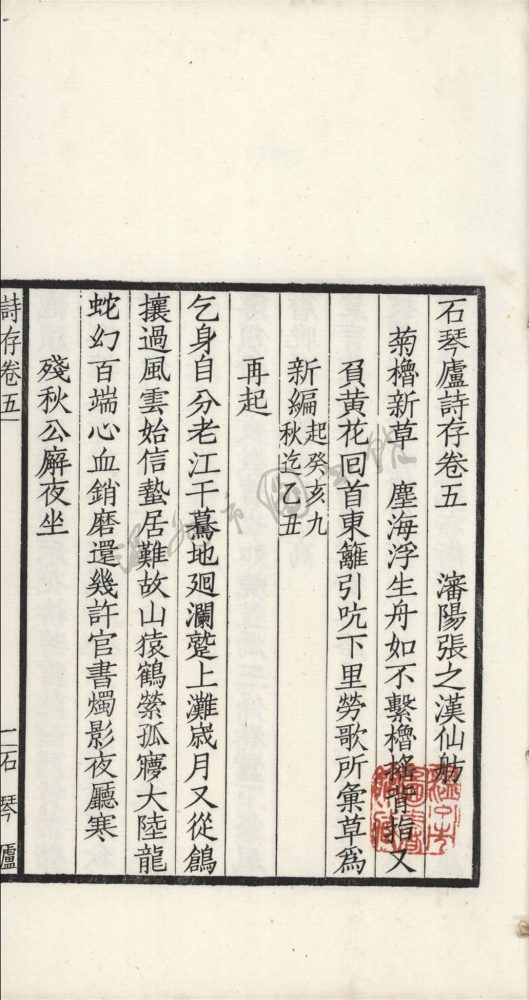 石琴廬詩存卷五　瀋陽張之漢仙舫
菊櫓新草　塵海浮生舟如不繫櫓搖背指又
負黃花回首東籬引吭下里勞歌所彙草爲
新編起癸亥九秋迄乙丑
再起
乞身自分老江干驀地廻瀾蹔上灘歲月又從鶬
攘過風雲始信蟄居難故山猿鶴縈孤寱大陸龍
蛇幻百端心血銷磨還幾許官書燭影夜廳寒
殘秋公廨夜坐
詩存卷五
一
石琴廬